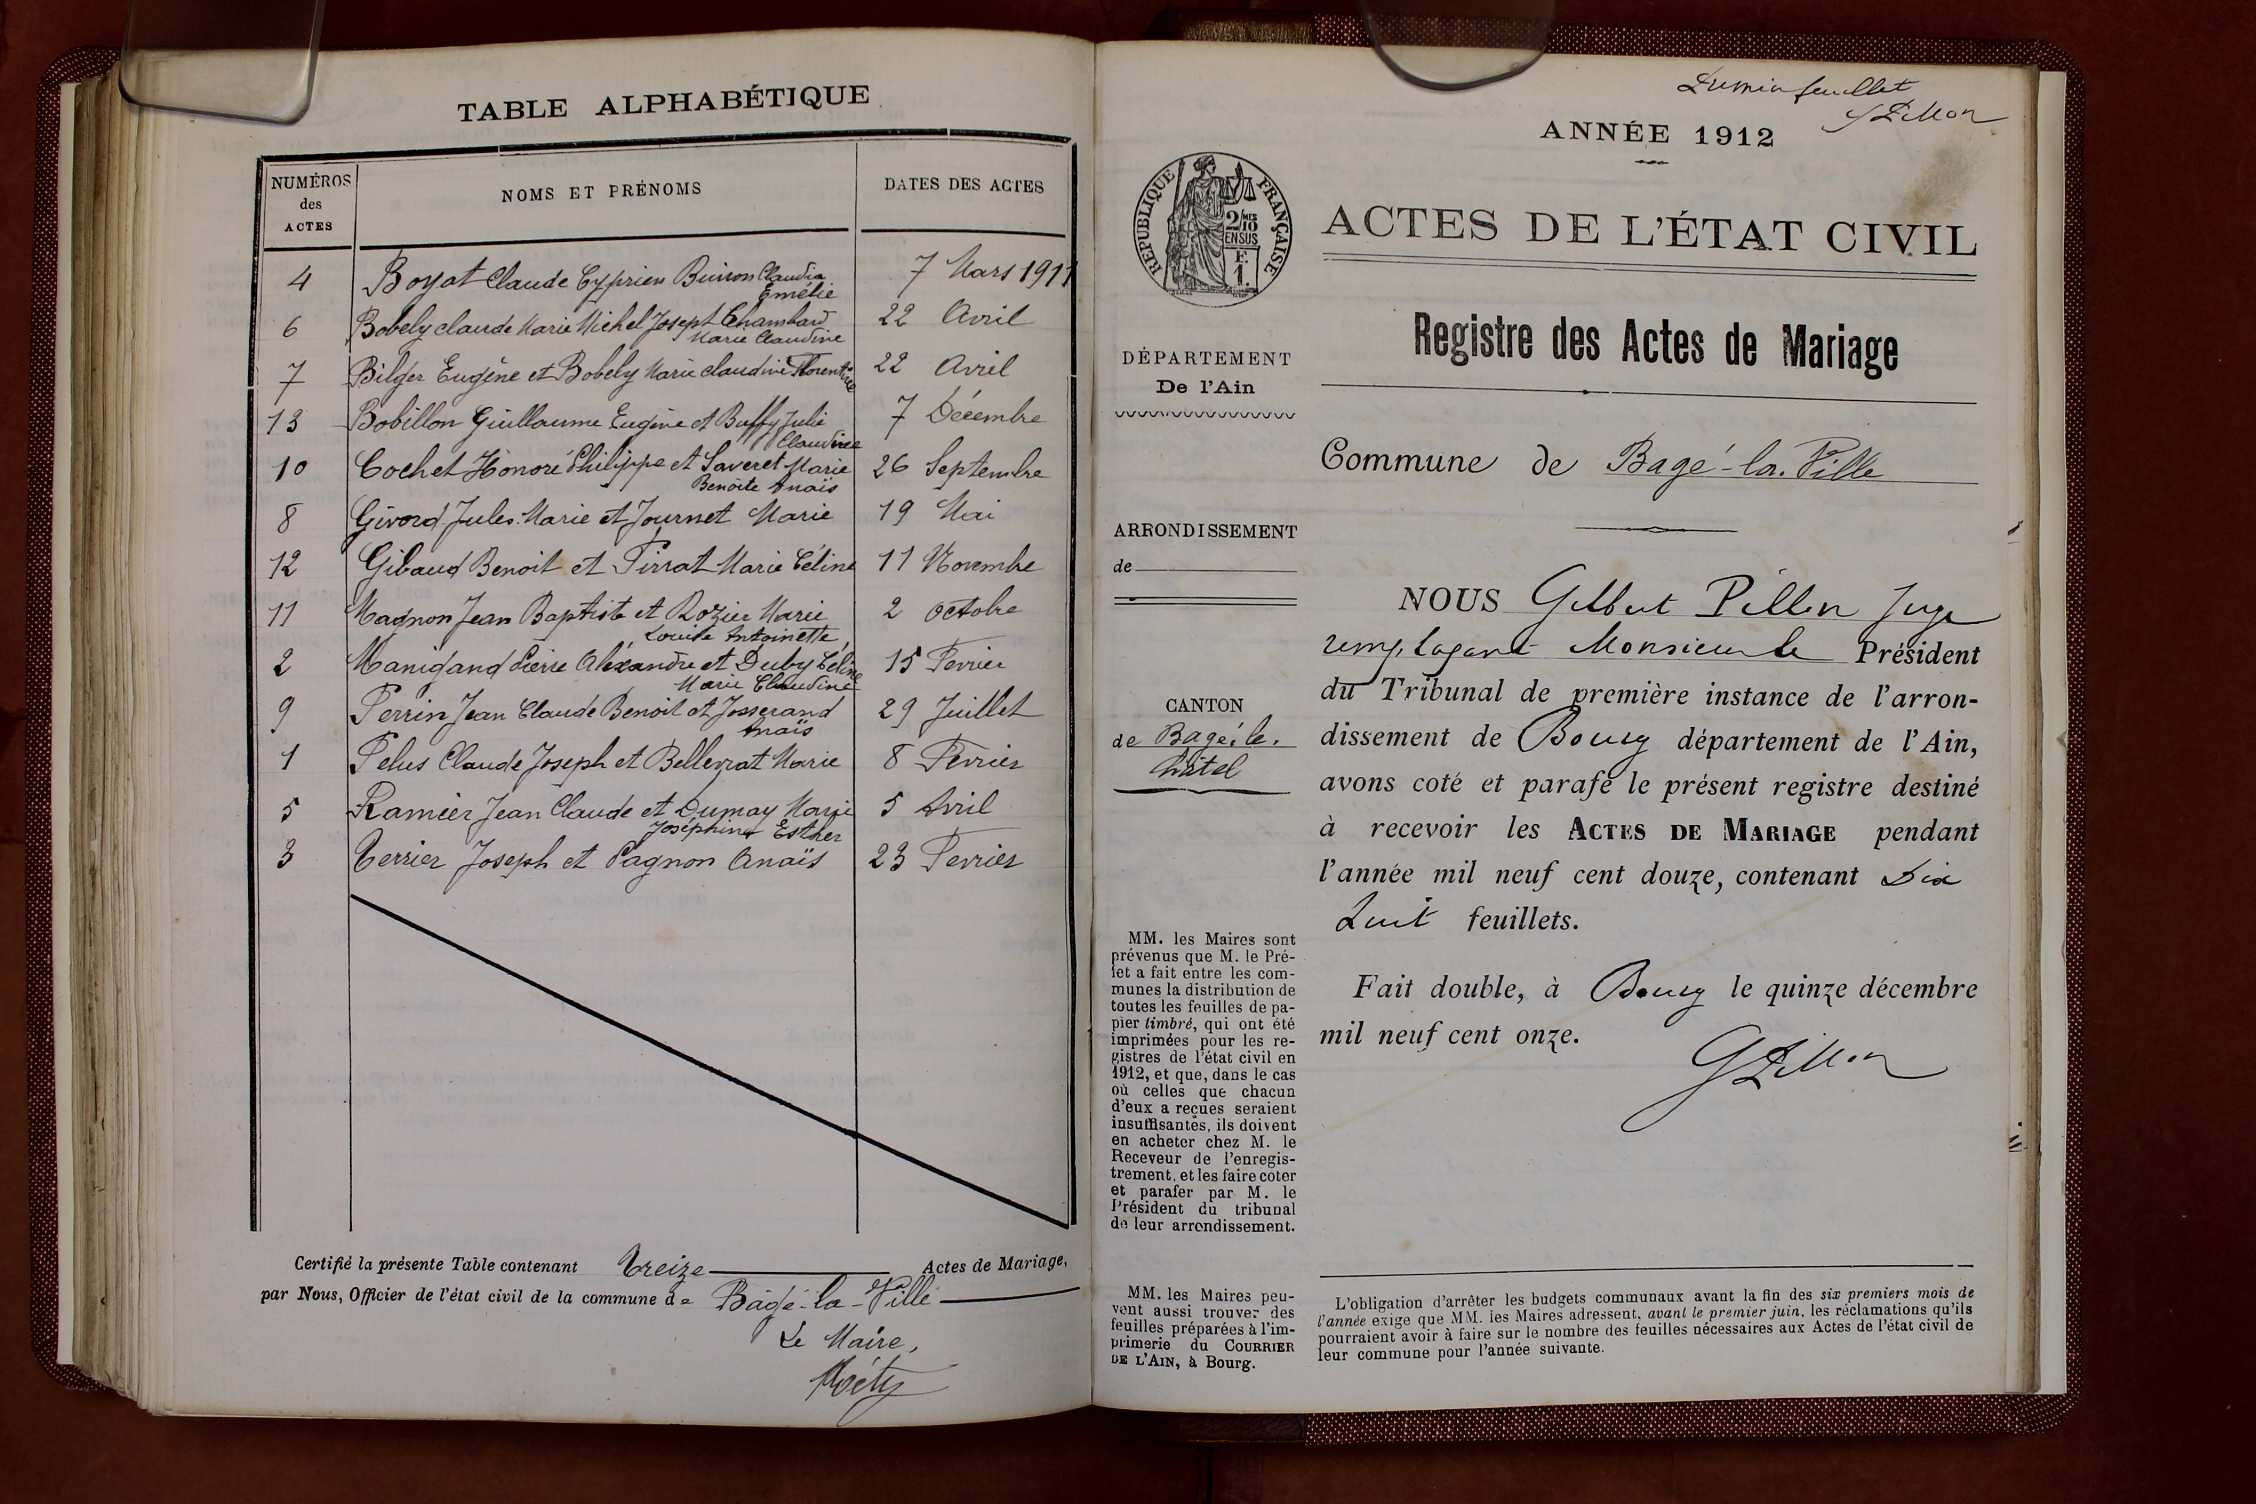 TABLE ALPHABÉTIQUE
NUMÉROS des ACTES
NOMS ET PRÉNOMS
DATES DES ACTES
4 Boyat Claude Cyprien Buiron Claudia Emélie 7 Mars 1911
6 Bobely claude Marie Michel Joseph Chambard Marie Claudine 22 Avril
7 Bilger Eugène et Bobely Marie claudine Florentine 22 Avril
13 Bobillon Guillaume Eugène et Buffy Julie Claudine 7 Décembre
10 Cochet Honoré Philippe et Saveret Marie Benoite Anaïs 26 Septembre
8 Givord Jules Marie et Journet Marie 19 Mai
12 Gibaud Benoit et Pirrat Marie Céline 11 Novembre
11 Magnon Jean Baptiste et Rozier Marie Louise Antoinette 2 octobre
2 Manigand Pierre Alexandre et Duby Céline Marie Claudine 15 Fevrier
9 Perrin Jean Claude Benoit et Josserand Anaïs 29 Juillet
1 Pelus Claude Joseph et Bellevrat Marie 8 Fevrier
5 Ramier Jean Claude et Dumay Marie Joséphine Esther 5 Avril
3 Terrier Joseph et Pagnon Anaïs 23 Fevrier
Certifié la présente Table contenant Treize Actes de Mariage,
par Nous, Officier de l'état civil de la commune de Bâgé-la-Ville
Le Maire,
feuillet
GPillon
ANNÉE 1912
RÉPUBLIQUE FRANÇAISE
2/10 MES
EN SUS
F.
1.
ACTES DE L'ÉTAT CIVIL
Registre des Actes de Mariage
DÉPARTEMENT
De l'Ain
Commune de Bagé-la-Ville
ARRONDISSEMENT
de
CANTON
de Bagé-le-
Châtel
NOUS Gilbert Pillon Juge
remplaçant Monsieur le Président
du Tribunal de première instance de l'arron-
dissement de Bourg département de l'Ain,
avons coté et parafé le présent registre destiné
à recevoir les ACTES DE MARIAGE pendant
l'année mil neuf cent douze, contenant Dix
huit feuillets.
Fait double, à Bourg le quinze décembre
mil neuf cent onze.
GPillon
MM. les Maires sont
prévenus que M. le Pré-
fet a fait entre les com-
munes la distribution de
toutes les feuilles de pa-
pier timbré, qui ont été
imprimées pour les re-
gistres de l'état civil en
1912, et que, dans le cas
où celles que chacun
d'eux a reçues seraient
insuffisantes, ils doivent
en acheter chez M. le
Receveur de l'enregis-
trement, et les faire coter
et parafer par M. le
Président du tribunal
de leur arrondissement.
MM. les Maires peu-
vent aussi trouver des
feuilles préparées à l'im-
primerie du COURRIER
DE L'AIN, à Bourg.
L'obligation d'arrêter les budgets communaux avant la fin des six premiers mois de
l'année exige que MM. les Maires adressent, avant le premier juin, les réclamations qu'ils
pourraient avoir à faire sur le nombre des feuilles nécessaires aux Actes de l'état civil de
leur commune pour l'année suivante.